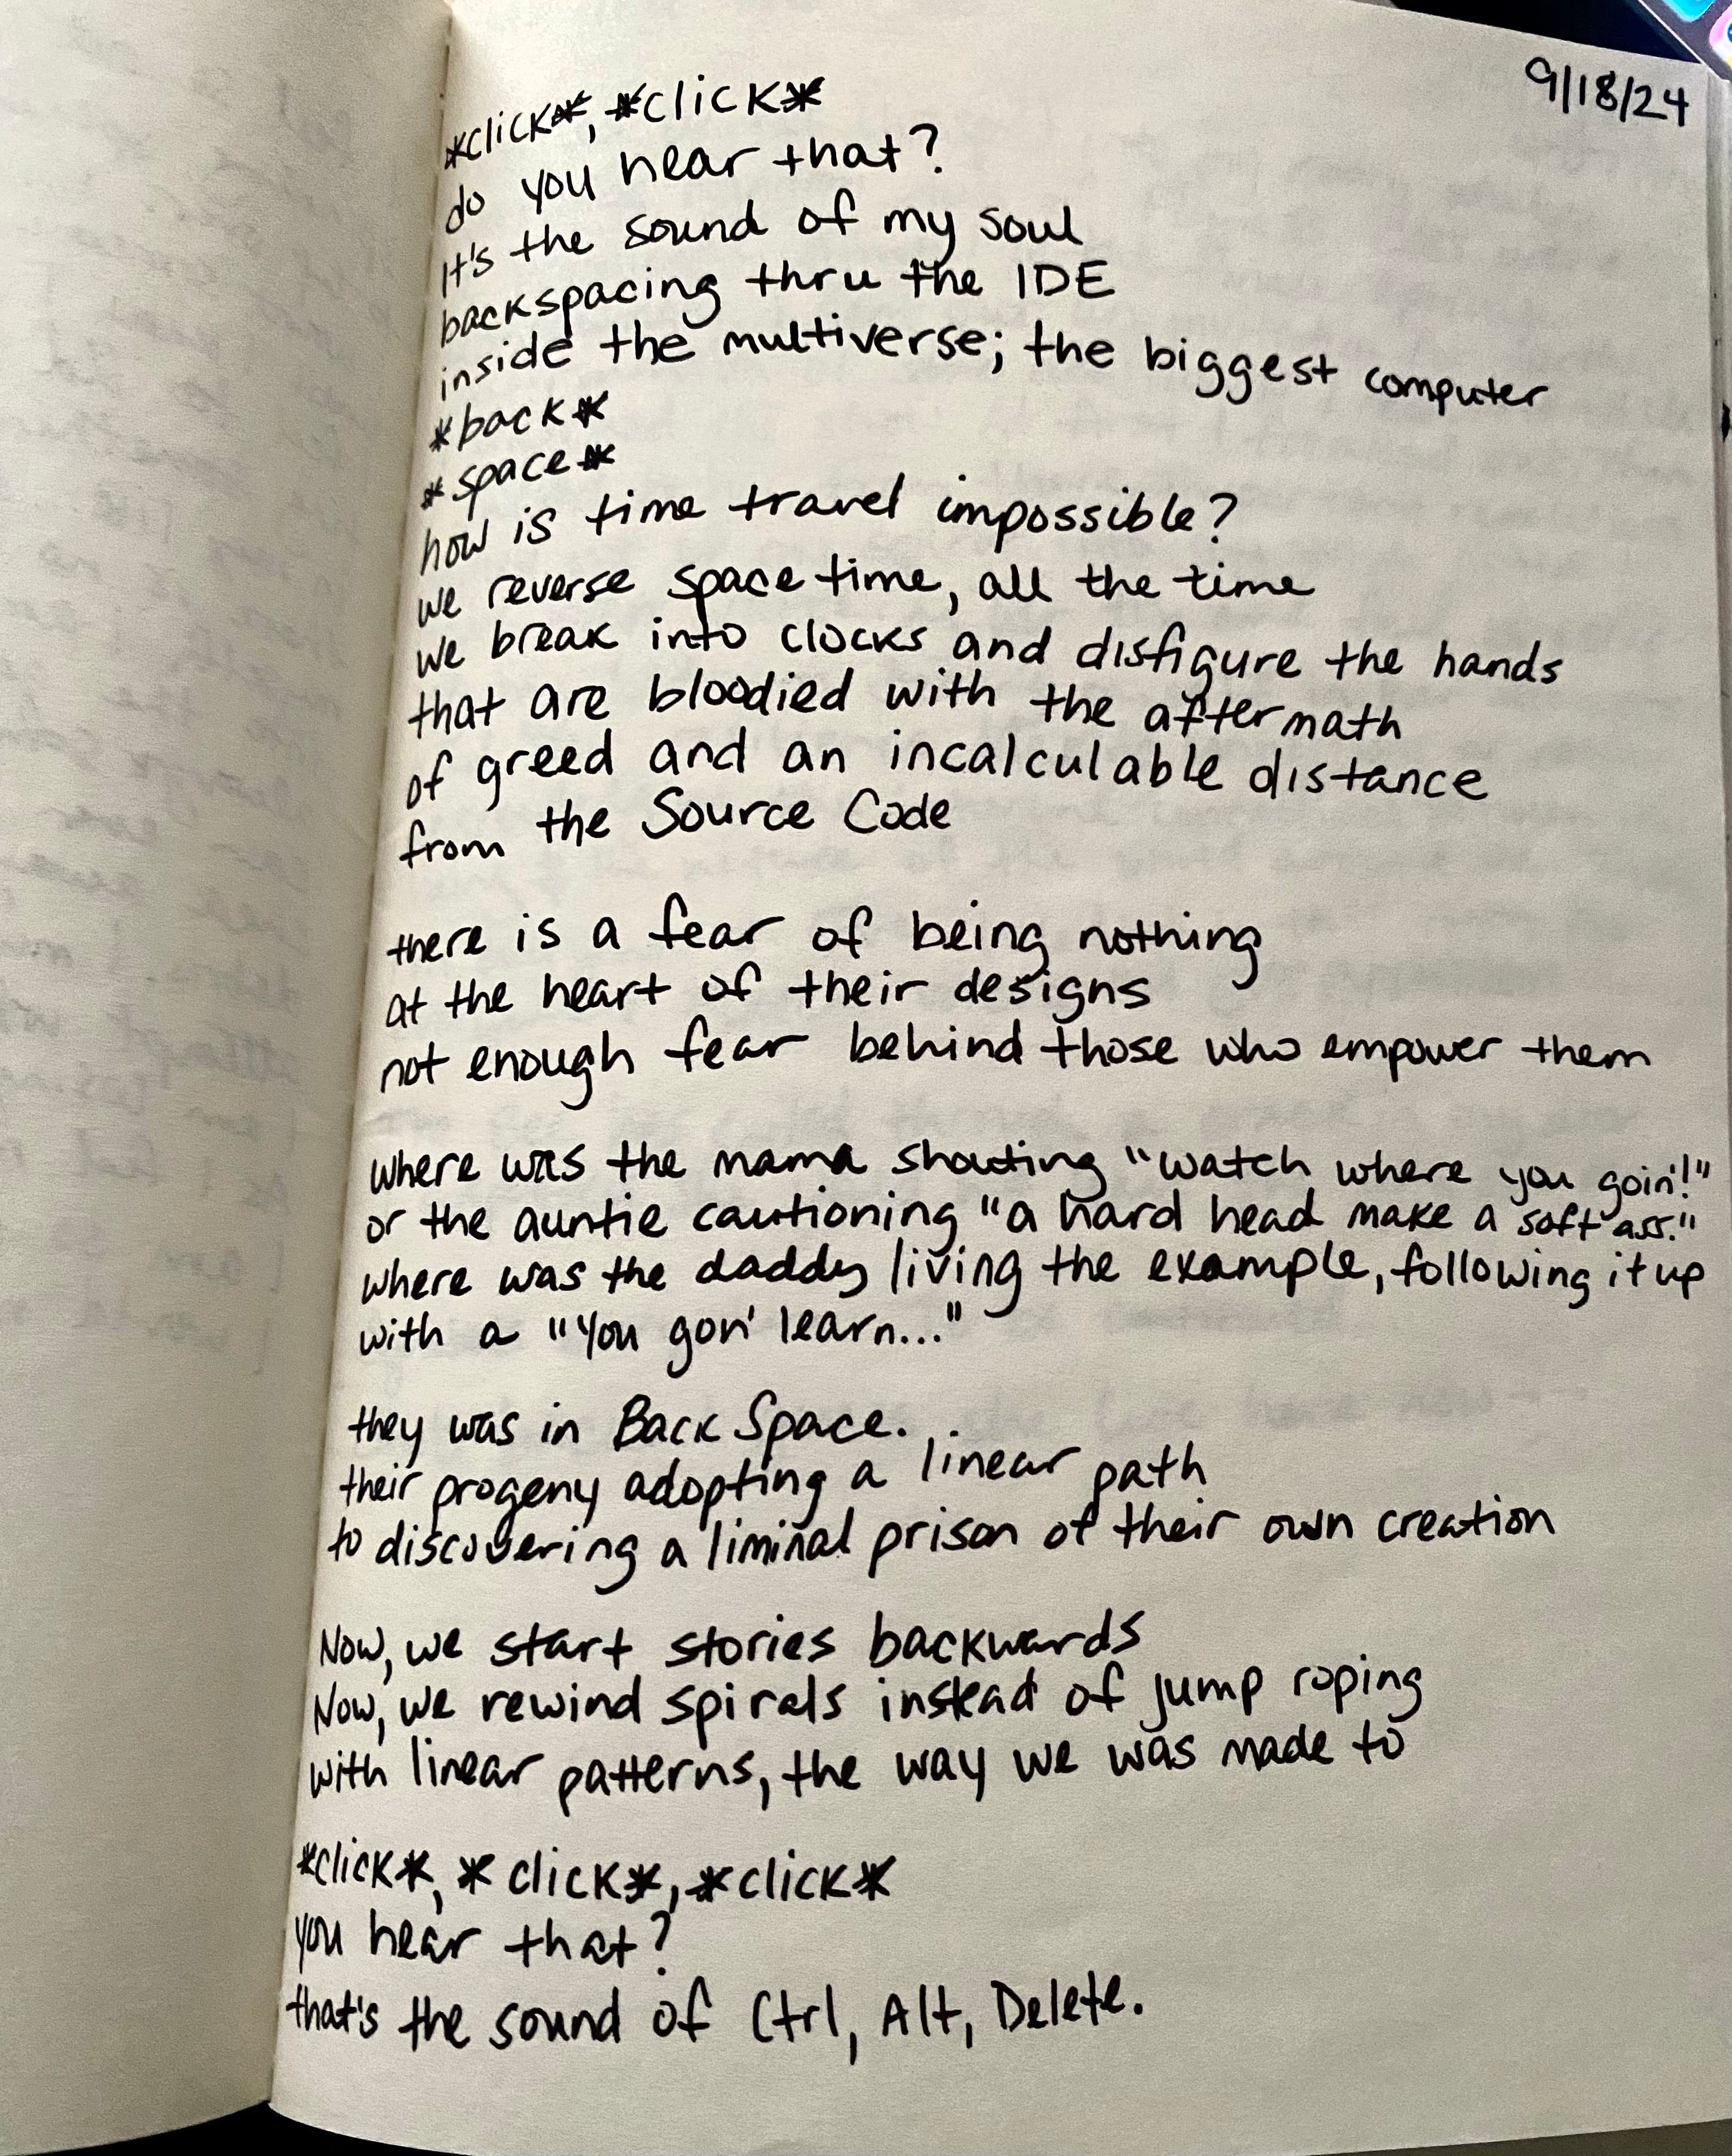 9/18/24
*click*, *click*
do you hear that?
It's the sound of my soul
backspacing thru the IDE
inside the multiverse; the biggest computer
*back*
*space*
how is time travel impossible?
we reverse space time, all the time
we break into clocks and disfigure the hands
that are bloodied with the aftermath
of greed and an incalculable distance
from the Source Code
there is a fear of being nothing
at the heart of their designs
not enough fear behind those who empower them
where was the mama shouting "watch where you goin'!"
or the auntie cautioning "a hard head make a soft ass."
where was the daddy living the example, following it up
with a "You gon' learn..."
they was in Back Space.
their progeny adopting a linear path
to discovering a liminal prison of their own creation
Now, we start stories backwards
Now, we rewind spirals instead of jump roping
with linear patterns, the way we was made to
*click*, *click*, *click*
you hear that?
that's the sound of Ctrl, Alt, Delete.